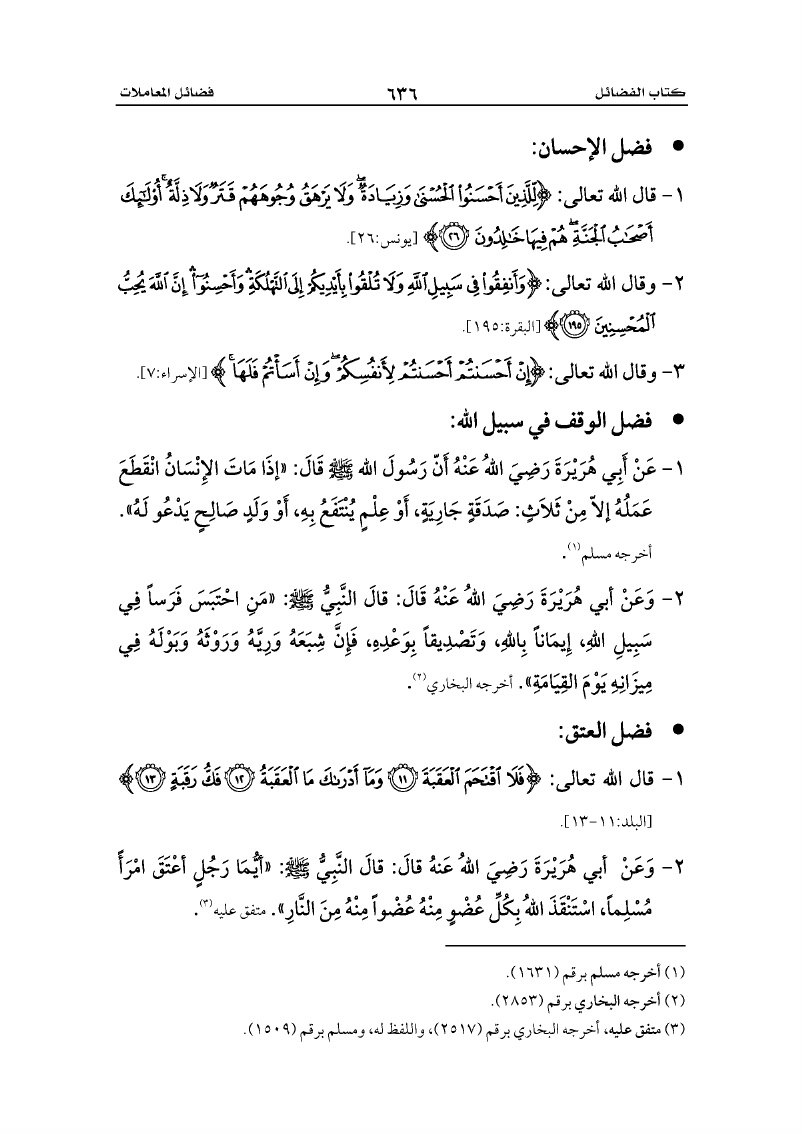 كتاب الفضائل ٦٣٦ فضائل المعاملات
• فضل الإحسان:
١- قال الله تعالى: ﴿لِّلَّذِينَ أَحْسَنُوا۟ ٱلْحُسْنَىٰ وَزِيَادَةٌۖ وَلَا يَرْهَقُ وُجُوهَهُمْ قَتَرٌ وَلَا ذِلَّةٌۚ أُو۟لَٰٓئِكَ
أَصْحَٰبُ ٱلْجَنَّةِۖ هُمْ فِيهَا خَٰلِدُونَ ٢٦﴾ [يونس:٢٦].
٢- وقال الله تعالى: ﴿وَأَنفِقُوا۟ فِى سَبِيلِ ٱللَّهِ وَلَا تُلْقُوا۟ بِأَيْدِيكُمْ إِلَى ٱلتَّهْلُكَةِۛ وَأَحْسِنُوٓا۟ۛ إِنَّ ٱللَّهَ يُحِبُّ
ٱلْمُحْسِنِينَ ١٩٥﴾ [البقرة:١٩٥].
٣- وقال الله تعالى: ﴿إِنْ أَحْسَنتُمْ أَحْسَنتُمْ لِأَنفُسِكُمْۖ وَإِنْ أَسَأْتُمْ فَلَهَاۚ﴾ [الإسراء:٧].
• فضل الوقف في سبيل الله:
١- عَنْ أَبِي هُرَيْرَةَ رَضِيَ اللهُ عَنْهُ أَنّ رَسُولَ الله ﷺ قَالَ: «إِذَا مَاتَ الإِنْسَانُ انْقَطَعَ
عَمَلُهُ إلاّ مِنْ ثَلاَثٍ: صَدَقَةٍ جَارِيَةٍ، أَوْ عِلْمٍ يُنْتَفَعُ بِهِ، أَوْ وَلَدٍ صَالِحٍ يَدْعُو لَهُ».
أخرجه مسلم(١).
٢- وَعَنْ أبي هُرَيْرَةَ رَضِيَ اللهُ عَنْهُ قَالَ: قالَ النَّبِيُّ ﷺ: «مَنِ احْتَبَسَ فَرَساً فِي
سَبِيلِ اللهِ، إِيمَاناً بِاللهِ، وَتَصْدِيقاً بِوَعْدِهِ، فَإِنَّ شِبَعَهُ وَرِيَّهُ وَرَوْثَهُ وَبَوْلَهُ فِي
مِيزَانِهِ يَوْمَ القِيَامَةِ». أخرجه البخاري(٢).
• فضل العتق:
١- قال الله تعالى: ﴿فَلَا ٱقْتَحَمَ ٱلْعَقَبَةَ ١١ وَمَآ أَدْرَىٰكَ مَا ٱلْعَقَبَةُ ١٢ فَكُّ رَقَبَةٍ ١٣﴾
[البلد:١١-١٣].
٢- وَعَنْ أبي هُرَيْرَةَ رَضِيَ اللهُ عَنهُ قالَ: قالَ النَّبِيُّ ﷺ: «أيُّمَا رَجُلٍ أعْتَقَ امْرَأً
مُسْلِماً، اسْتَنْقَذَ اللهُ بِكُلِّ عُضْوٍ مِنْهُ عُضْواً مِنْهُ مِنَ النَّارِ». متفق عليه(٣).
(١) أخرجه مسلم برقم (١٦٣١).
(٢) أخرجه البخاري برقم (٢٨٥٣).
(٣) متفق عليه، أخرجه البخاري برقم (٢٥١٧)، واللفظ له، ومسلم برقم (١٥٠٩).